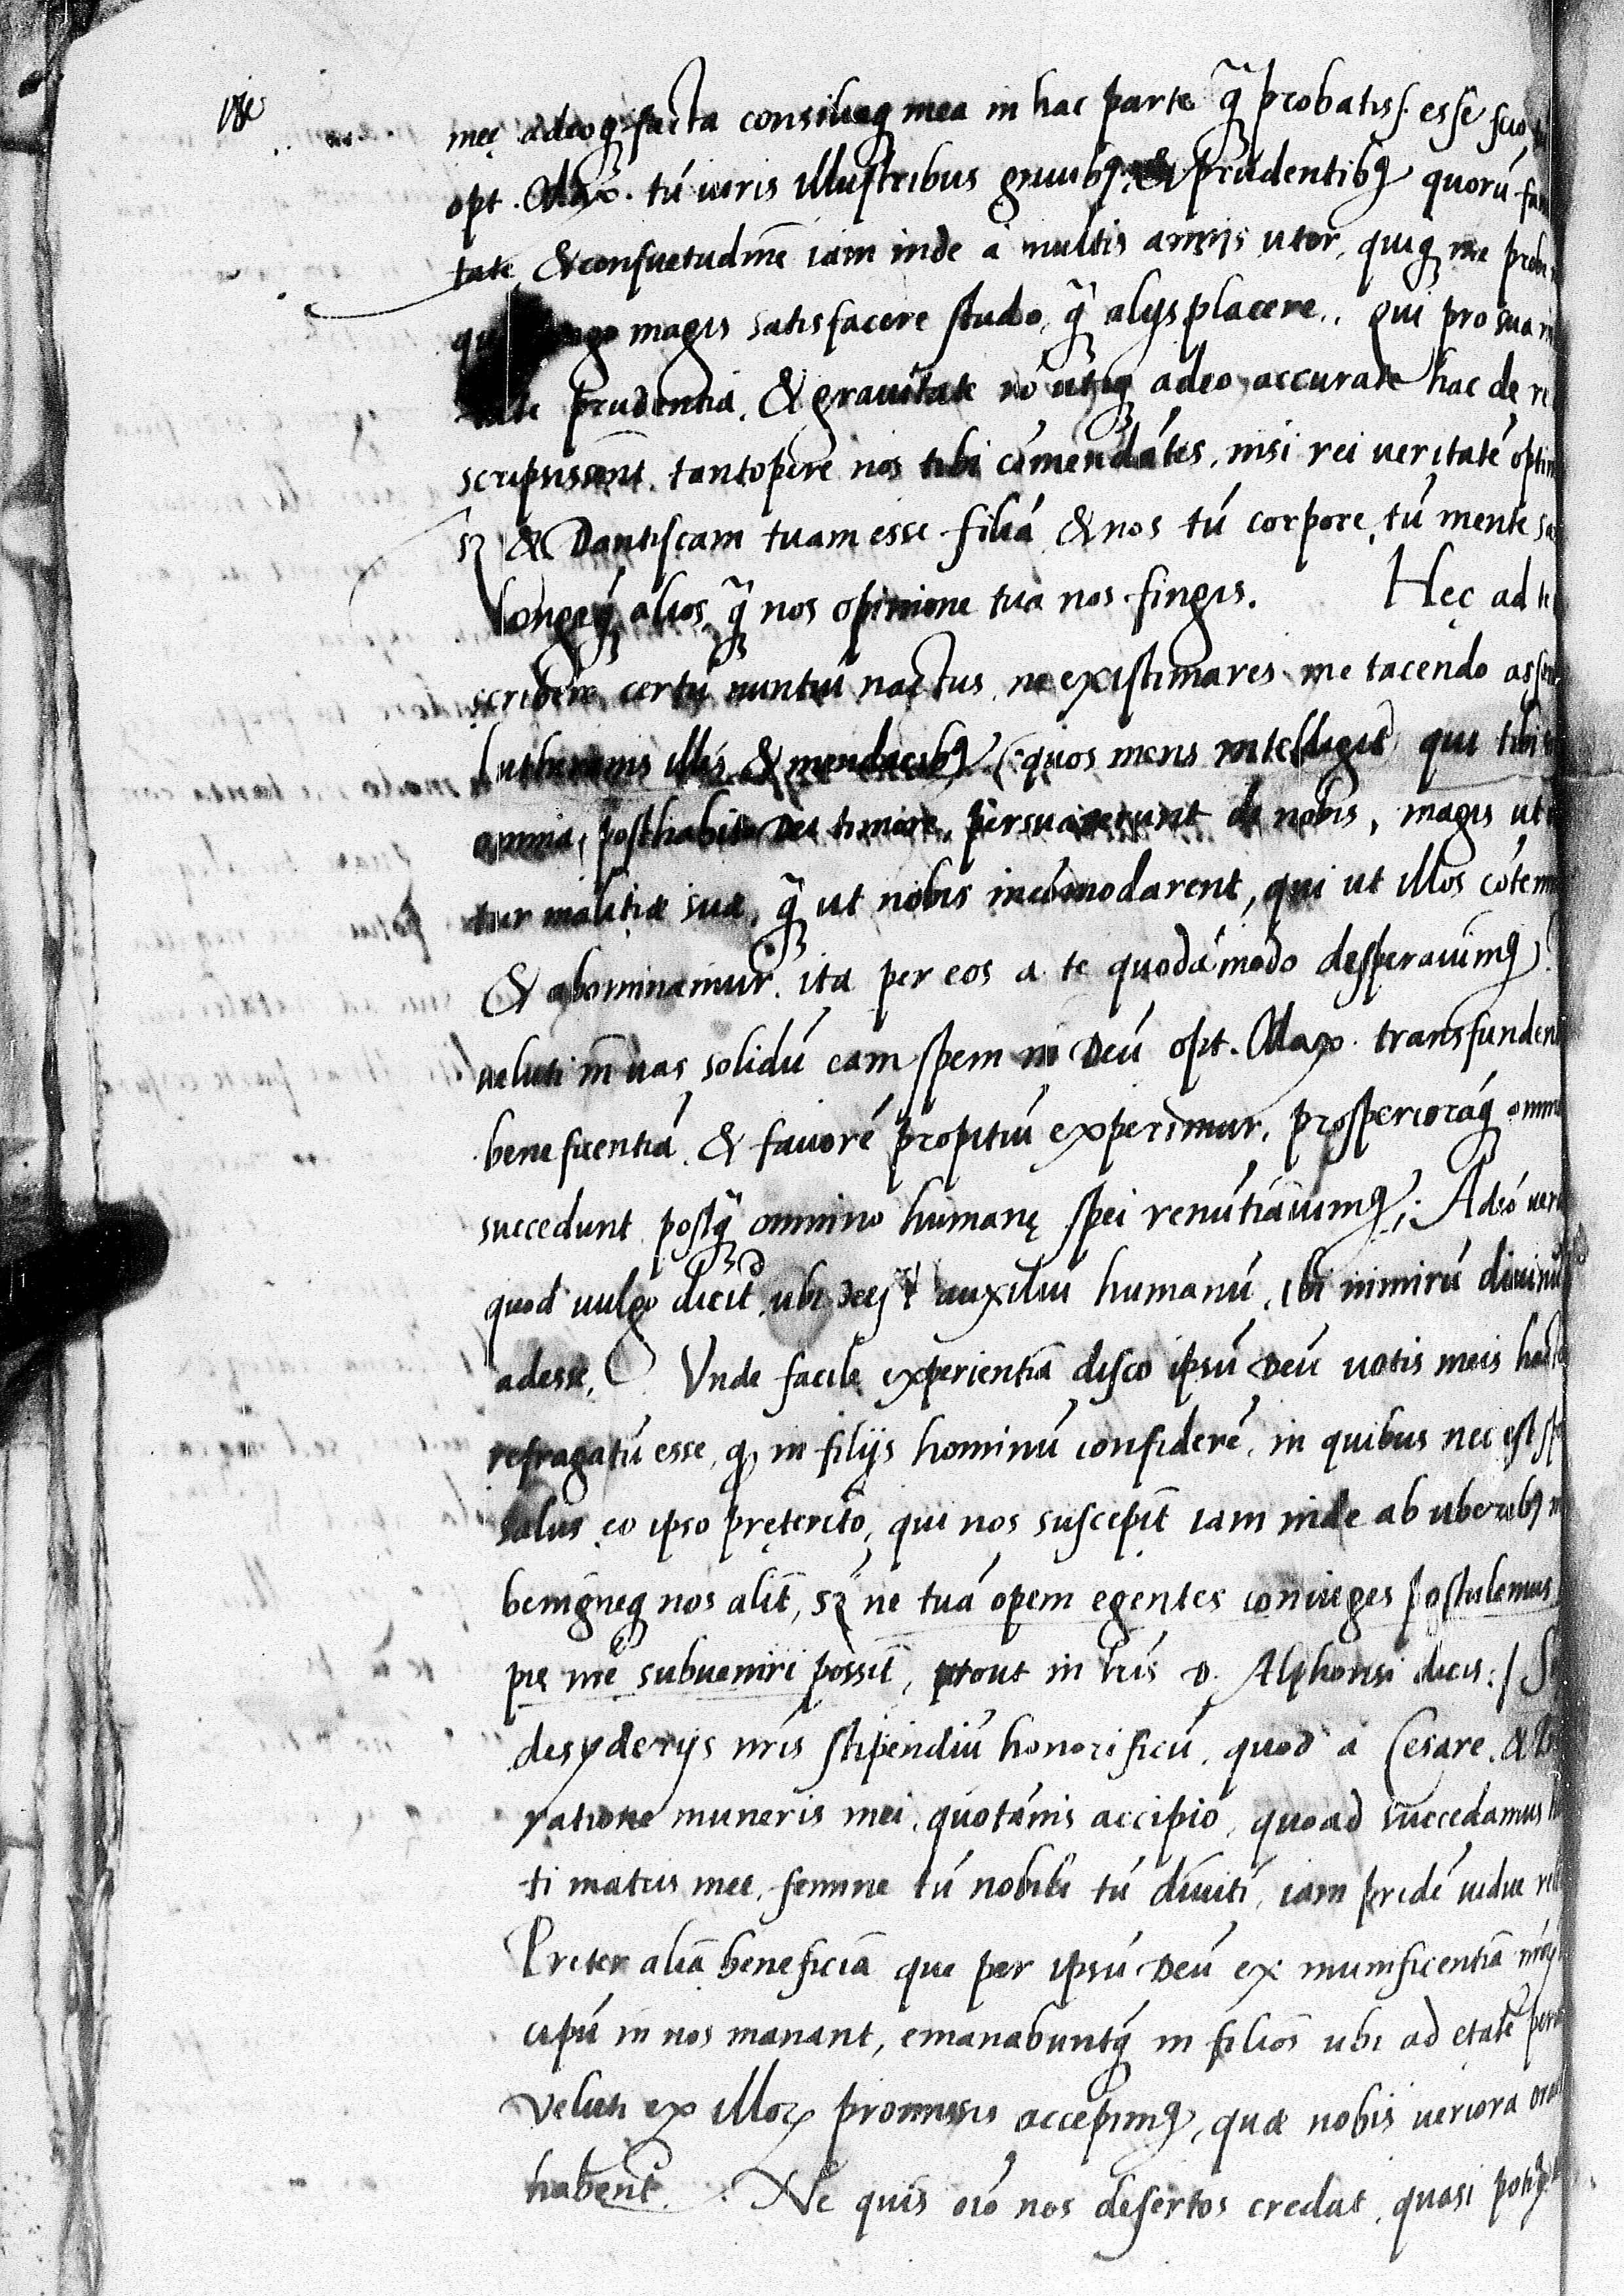 meę adeoq facta consiliaq mea in hac parte q̃ probatiss. esse scio
opt. Max. tú uiris illustribus grauibq & prudentibq quorú
tate, & consuetudinẽ iam inde a multis annis utor, quiq me
magis satisfacere studeo, q̃ alijs placere. qui pro sua
prudentia, & grauitate nó utiq adeo accurate hac de re
scripsissent, tantopere nos tibi cómendátes, nisi rei ueritaté
sz & Dantiscam tuam esse filiá & nos tú corpore, tú mente
longeq alios, q̃ nos opinione tua nos fingis. Hęc ad
scribere certú nuntiú nactus, ne existimares me tacendo
lutheranis illis & mendacibq (quos mens intelligit) qui tibi
omnia, posthabito Dei timore, persuaserunt de nobis, magis ut
tur malitiæ suæ, q̃ ut nobis incómodarent, qui ut illos
& abominamur, ita per eos a te quodámodo desperauimq,
ueluti in uas solidú eam spem in Deú opt. Max. transfunden
beneficentiá, & fauoré propitiú experimur, prosperioráq
succedunt postq̃ omnino humanę spei renútiauimq; Adeó
quod uulgo dicit, ubi auxiliú humanú, ibi nimirú diuinú
adesse. Vnde facile experientia disco ipsú Deú uotis meis
refragatú esse, q in filijs hominú confideré, in quibus nec est
salus, eo ipso pręterito, qui nos suscepit iam inde ab uberibq
benigneq nos alit, sz ne tuá opem egentes coniuges postulemus,
pię nrę subueniri possit, prout in lris D. Alphonsi dicis: /
desyderijs nris stipendiú honorificú, quod a Cesare, &
ratione muneris mei quotánis accipio, quoad succedamus
ti matris mee, femine tú nobili tú diuiti, iam pridé uidue
Preter alia beneficia que per ipsú Deú ex munificentia
cipú in nos manant, emanabuntq in filios ubi ad etaté
Veluti ex illoꝝ promissis accepimq, quæ nobis ueriora
habent. Ne quis oió nos desertos credat, quasi